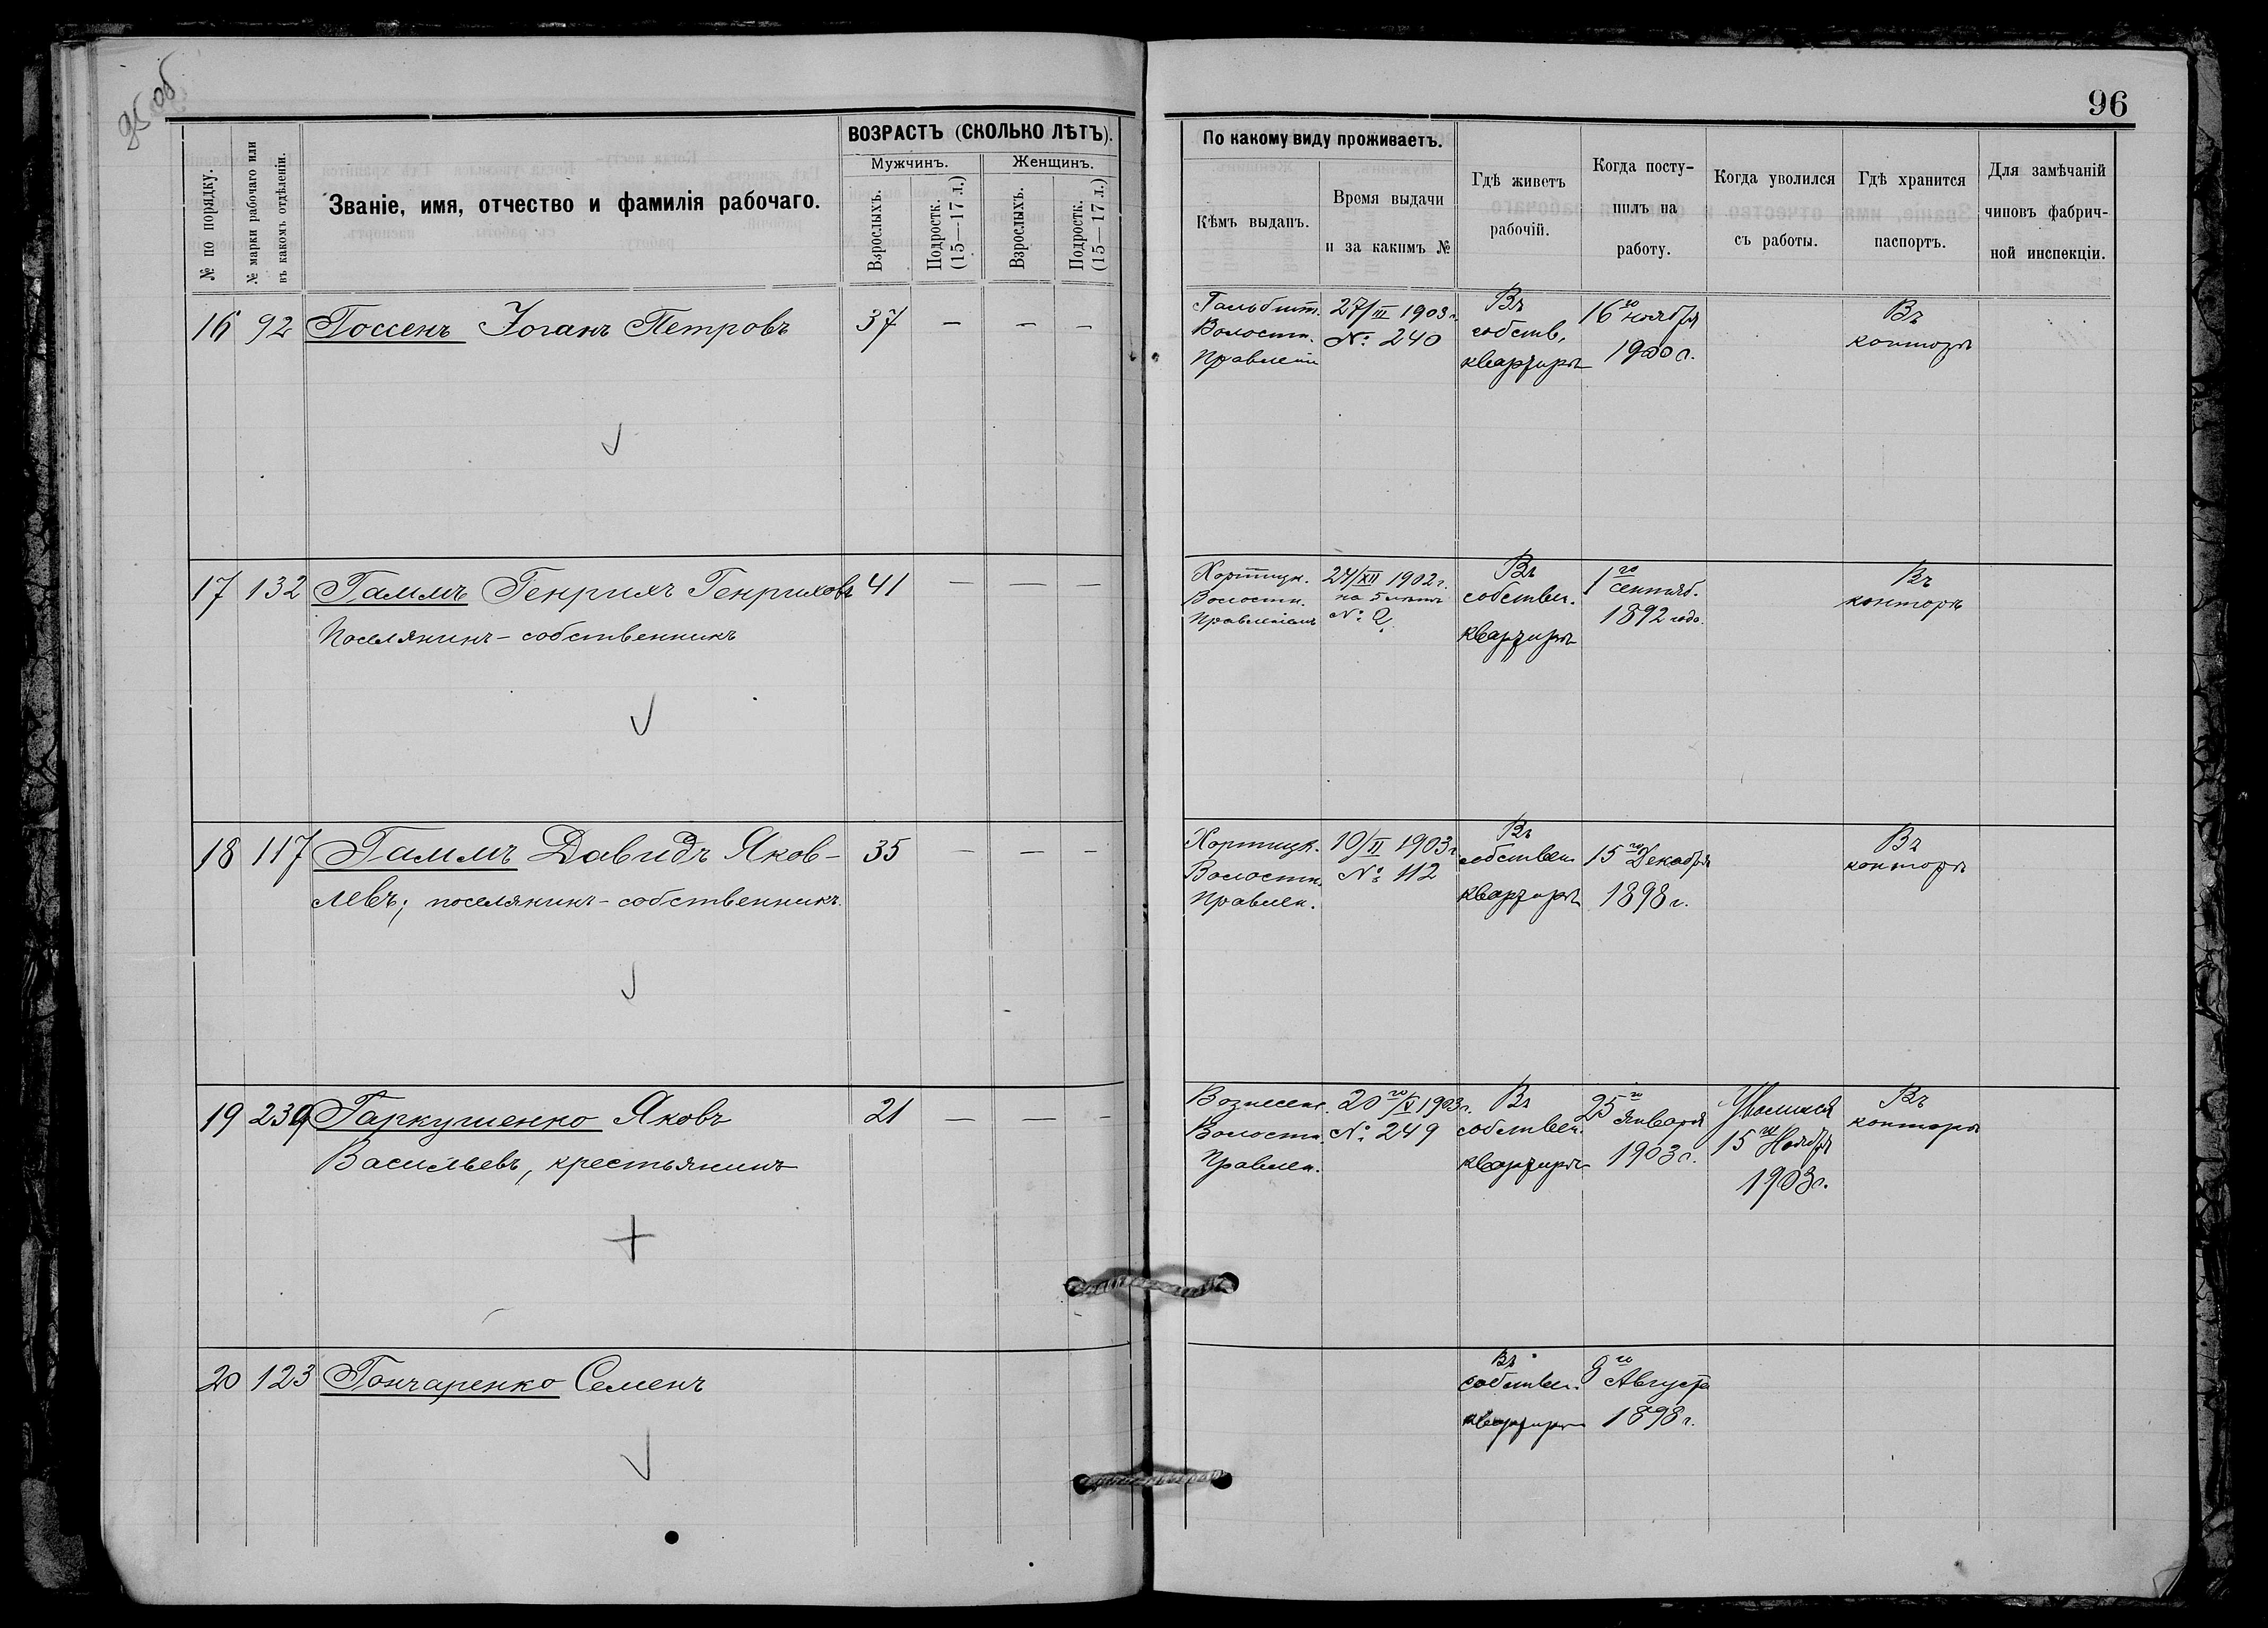 95 об
96
ВОЗРАСТЪ (СКОЛЬКО ЛѢТЪ).
Мужчинъ.
Женщинъ.
№ по порядку.
№ марки рабочаго или
въ какомъ отдѣленіи.
Званіе, имя, отчество и фамилія рабочаго.
Взрослыхъ.
Подростк.
(15—17 л.)
Взрослыхъ.
Подростк.
(15—17 л.)
По какому виду проживаетъ.
Кѣмъ выданъ.
Время выдачи
и за какимъ №
Гдѣ живетъ
рабочій.
Когда посту-
пилъ на
работу.
Когда уволился
съ работы.
Гдѣ хранится
паспортъ.
Для замѣчаній
чиновъ фабрич-
ной инспекціи.
16 92 Госсенъ Іоганъ Петровъ 37 — — —
Гальбшт.
Волостн.
Правлені
27/III 1903 г.
№ 240
Въ
собств.
квартирѣ
16го ноября
1900 г.
Въ
конторѣ
17 132 Гаммъ Генрихъ Генриховъ 41 — — —
Поселянинъ-собственникъ
Хортицк.
Волостн.
Правленіемъ
24/XII 1902 г.
на 5 лѣтъ
№ 2.
Въ
собствен.
квартирѣ
1го сентяб.
1892 года.
Въ
конторѣ
18 117 Гаммъ Давидъ Яков- 35 — — —
левъ; поселянинъ-собственникъ.
Хортицк.
Волостн.
Правлен.
10/II 1903 г.
№ 112
Въ
собствен
квартирѣ
15го Декабря
1898 г.
Въ
конторѣ
19 239 Гаркушенко Яковъ 21 — — —
Васильевъ, крестьянинъ
Вознесен.
Волостн.
Правлен.
20го/V 1903 г.
№ 249
Въ
собствен.
квартирѣ
25го января
1903 г.
Уволился
15го Ноября
1903 г.
Въ
конторѣ
20 123 Гончаренко Семенъ
Въ
собствен.
квартирѣ
9го Августа
1898 г.